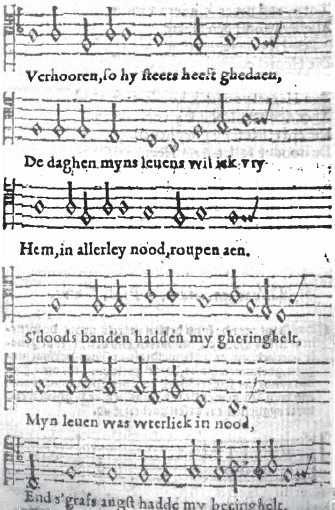 Verhooren, so hy steets heeft ghedaen,
De daghen myns leuens wil iek vry
Hem, in allerley nood, roupen aen.
S'doods banden hadden my gheringhelt,
Myn leuen was wterliek in nood,
End s'grafs angst hadde my beeinghelt.